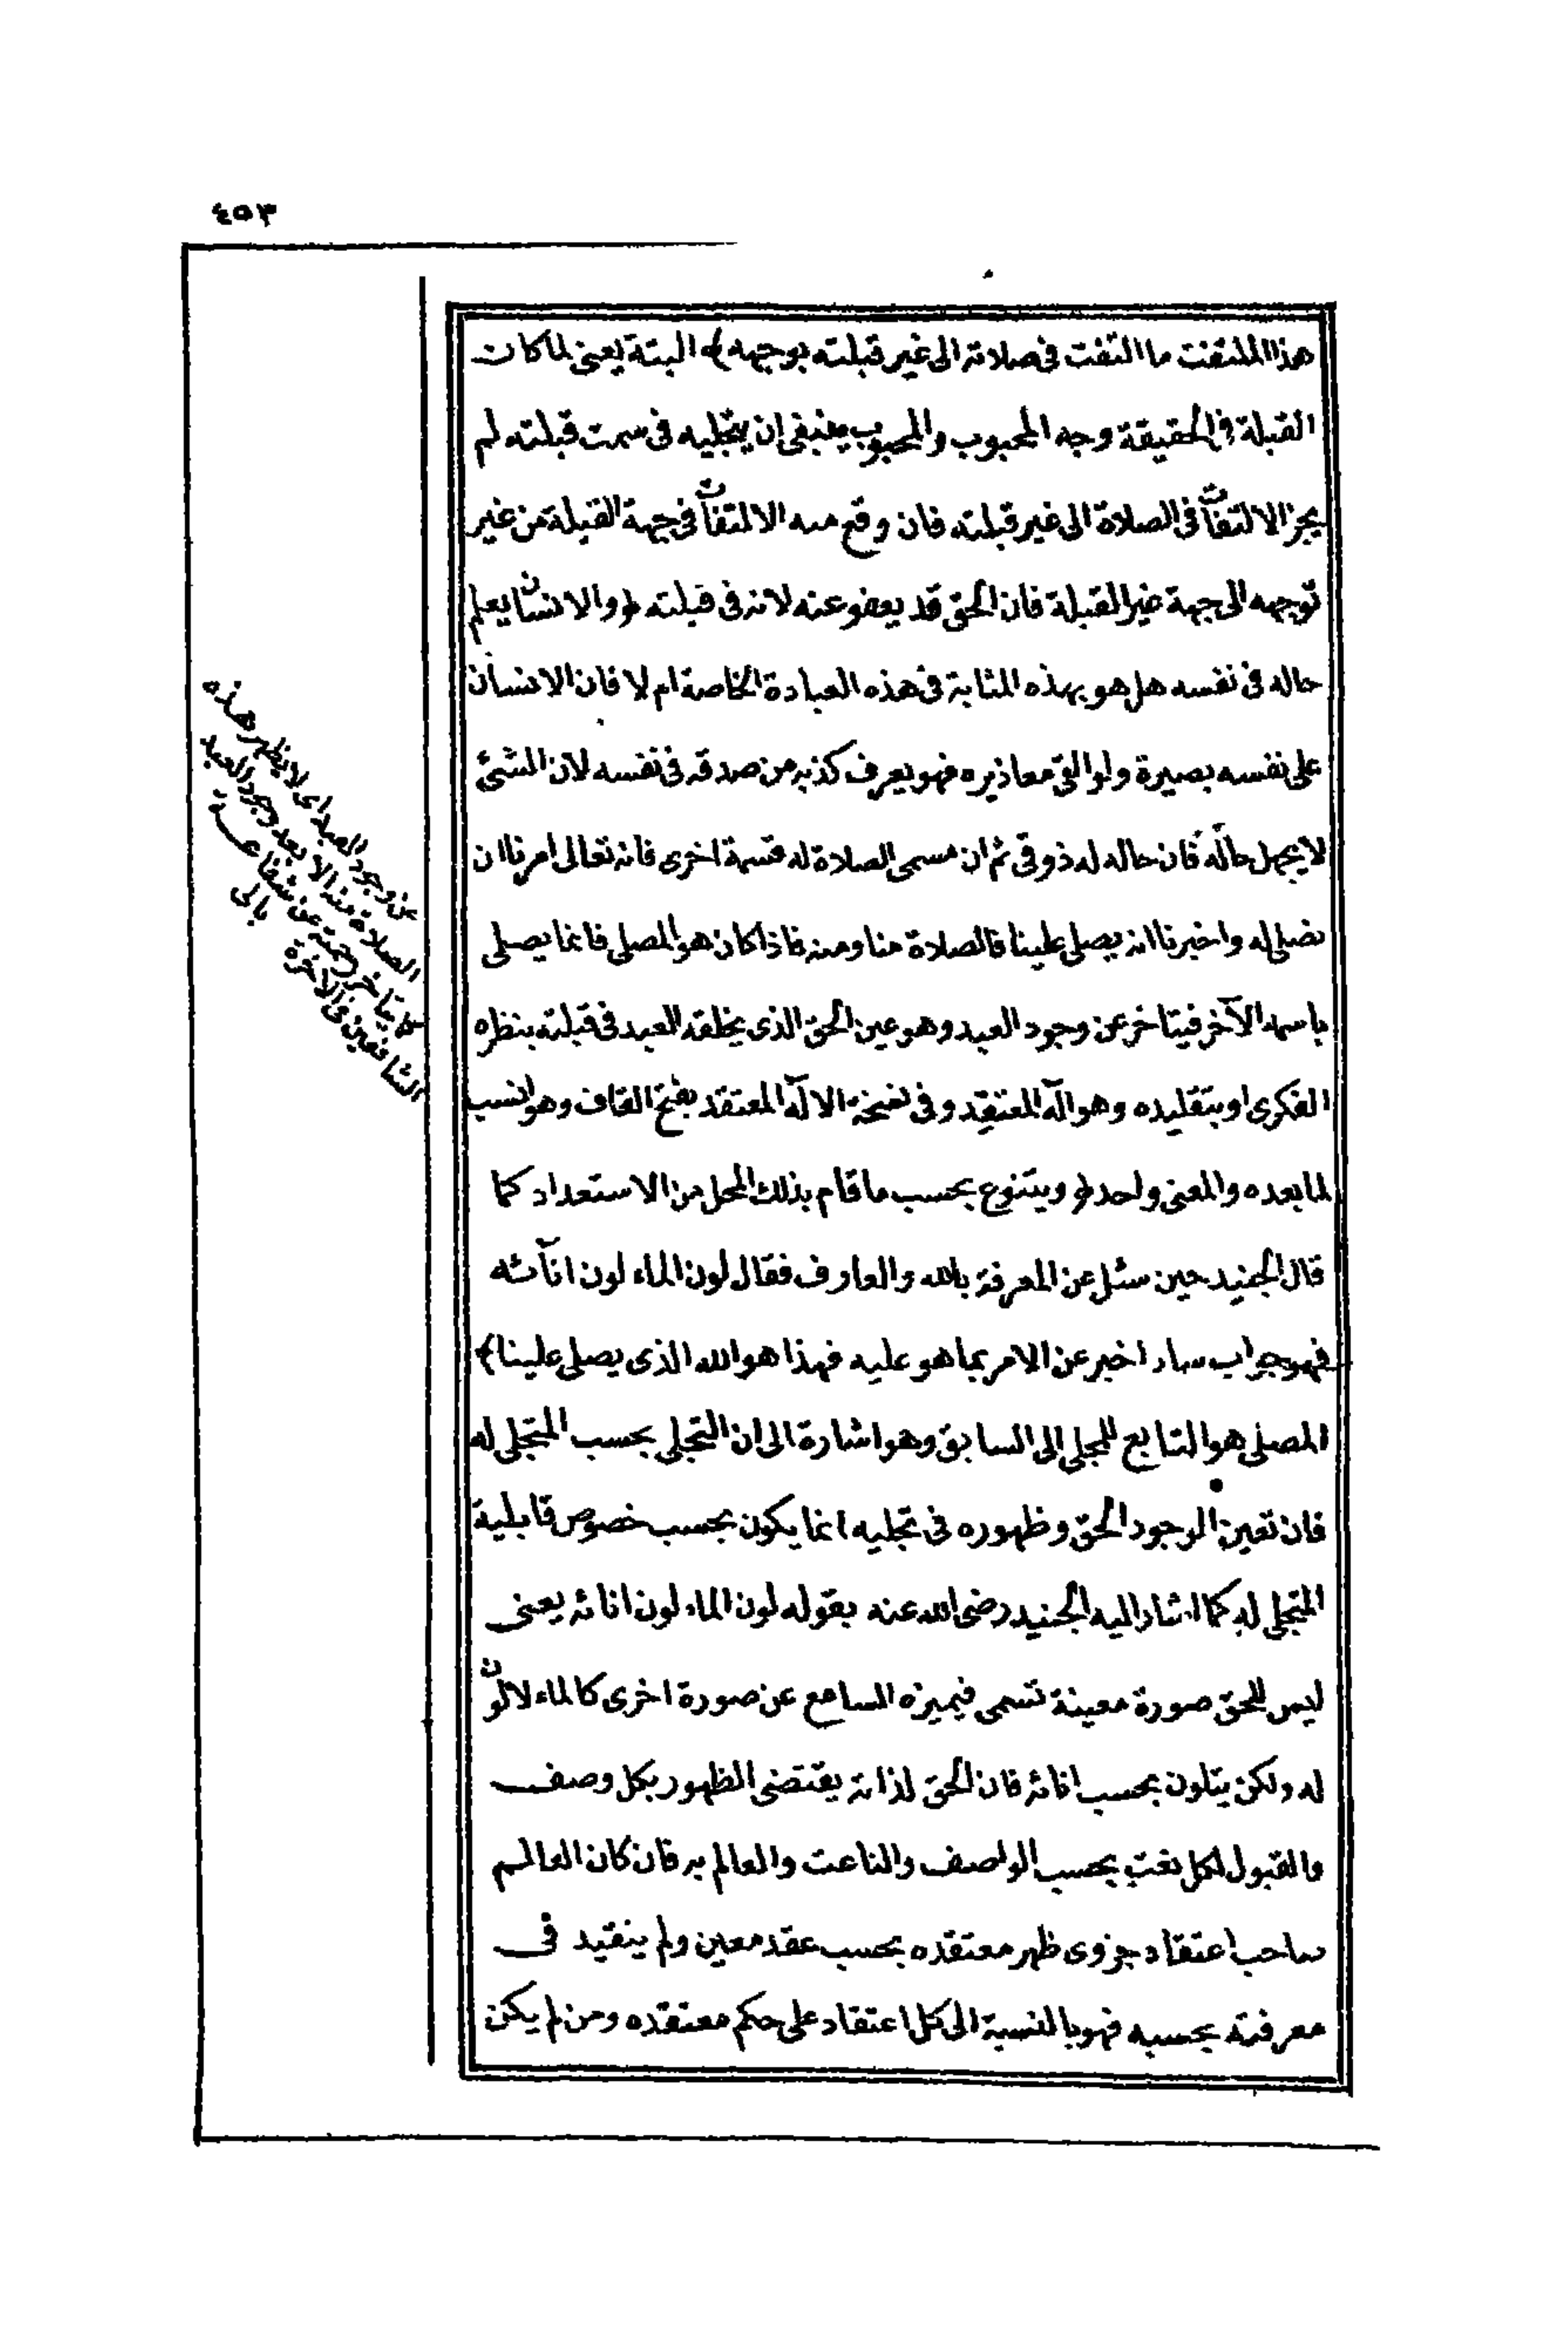 ٤٥٣
هذا الملتفت ما التفت فى صلاته الى غير قبلته بوجهه﴾ البتة يعنى لما كان
القبلة فى الحقيقة وجه المحبوب والمحبوب ينبغى ان يتجليه فى سمت قبلته لم
يجز الالتفات فى الصلاة الى غير قبلته فان وقع منه الالتفات فى جهة القبلة من غير
توجهه الى جهة غير القبلة فان الحق قد يعفو عنه لانه فى قبلته ﴿والانسان يعلم
حاله فى نفسه هل هو بهذه المثابة فى هذه العبادة الخاصة ام لا فان الانسان
على نفسه بصيرة ولو القى معاذيره فهو يعرف كذبه من صدقه فى نفسه لان الشئ
لا يجهل حاله فان حاله له ذوقى ثم ان مسمى الصلاة له قسمة اخرى فانه تعالى امرنا ان
نصلى له واخبرنا انه يصلى علينا فالصلاة منا ومنه فاذا كان هو المصلى فانما يصلى
باسمه الآخر فيتاخر عن وجود العبد وهو عين الحق الذى يخلقه العبد فى قبلته بنظره
الفكرى او بتقليده وهو اله المعتقد وفى نسخة الاله المعتقد بفتح القاف وهو انسب
لما بعده والمعنى واحد﴿ ويتنوع بحسب ما قام بذلك المحل من الاستعداد كما
قال الجنيد حين سئل عن المعرفة بالله والعارف فقال لون الماء لون انائه
فهو جواب ساد اخبر عن الامر بما هو عليه فهذا هو الله الذى يصلى علينا﴾
المصلى هو التابع للمجلى الى السابق وهو اشارة الى ان التجلى بحسب المتجلى له
فان تعين الوجود الحق وظهوره فى تجليه انما يكون بحسب خصوص قابلية
المتجلى له كما اشار اليه الجنيد رضى الله عنه بقوله لون الماء لون انائه يعنى
ليس للحق صورة معينة تسمى فيميزه السامع عن صورة اخرى كالماء لا لون
له ولكن يتلون بحسب انائه فان الحق لذاته يقتضى الظهور بكل وصف
والقبول لكل نعت بحسب الواصف والناعت والعالم به فان كان العالم
صاحب اعتقاد جزوى ظهر معتقده بحسب عقد معين ولم ينقيد فى
معرفته بحسبه فهو بالنسبة الى كل اعتقاد على حكم معتقده ومن لم يكن
عن وجود العبد اى لا يظهر هذه
الصلاة منه الا بعد وجود العبد
كما يتأخر رحمته عن شفاعة
الشافعين فى الآخرة بالى